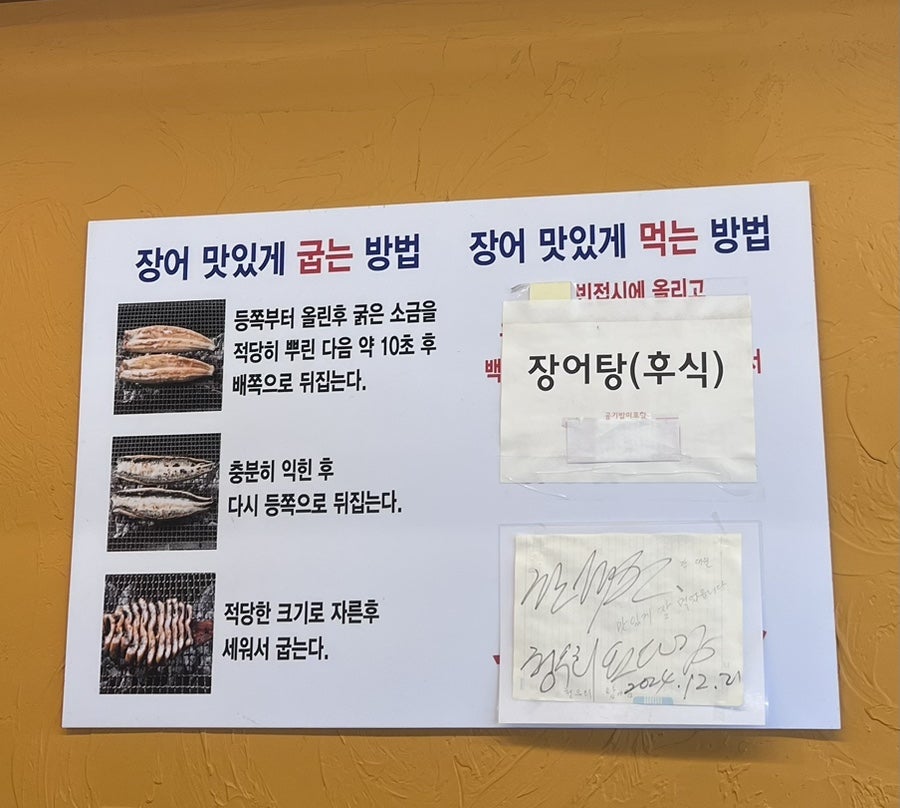 장어 맛있게 굽는 방법
등쪽부터 올린후 굵은 소금을
적당히 뿌린 다음 약 10초 후
배쪽으로 뒤집는다.
충분히 익힌 후
다시 등쪽으로 뒤집는다.
적당한 크기로 자른후
세워서 굽는다.
장어 맛있게 먹는 방법
올리고
장어탕(후식)
공기밥미포함
맛있게 잘 먹었습니다
2024.12.21